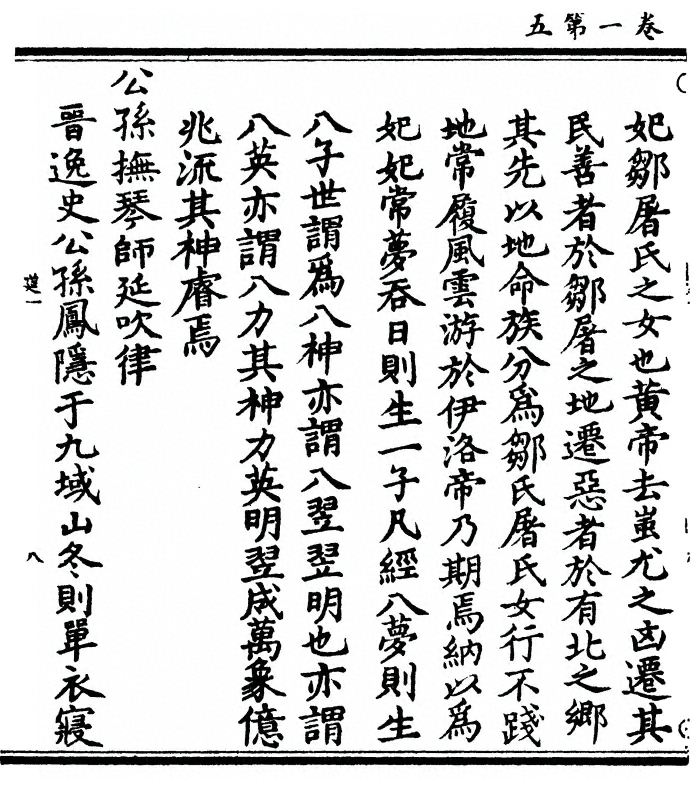 卷一第五
妃鄒屠氏之女也黃帝去蚩尤之凶遷其
民善者於鄒屠之地遷惡者於有北之鄉
其先以地命族分爲鄒氏屠氏女行不踐
地常履風雲游於伊洛帝乃期焉納以爲
妃妃常夢吞日則生一子凡經八夢則生
八子世謂爲八神亦謂八翌翌明也亦謂
八英亦謂八力其神力英明翌成萬象億
兆流其神睿焉
公孫撫琴師延吹律
晉逸史公孫鳳隱于九域山冬則單衣寢
八